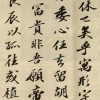 休已矣乎寓形宇
委心任去留胡
富貴非吾願帝
良辰以孤往或植